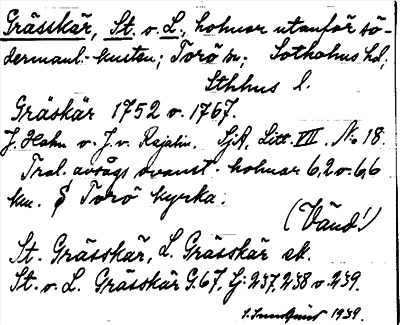 Grässkär, St. o. L., holmar utanför sö-
dermanl. kusten; Torö sn; Sotholms hd;
Sthlms l.
Gräskär 1752 o. 1767.
J. Hahn o. J. v. Rajalin. SjA, Litt. VII. No 18.
Tral. avlägs ovanst. holmar 6,2 o. 6,6
km. S Torö kyrka.
(Vänd!)
St. Grässkär, L. Grässkär ek.
St. o. L. Grässkär G.67, Lj: 237, 238 o. 239.
1939.